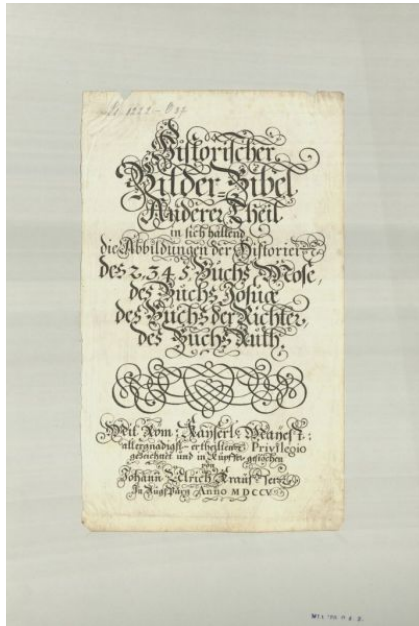 Historischer
Bilder-Bibel
Anderer Theil
in sich haltend
die Abbildungen der Historien
des 2, 3 4 5 Buchs Mose,
des Buchs Josuæ
des Buchs der Richter,
des Buchs Ruth.
Mit Rom: Kayserl: Mayest:
allergnädigst ertheiltem Privilegio
gezeichnet und in Kupffer gestochen
von
Johann Ulrich Krauß
In Augspurg Anno MDCCV